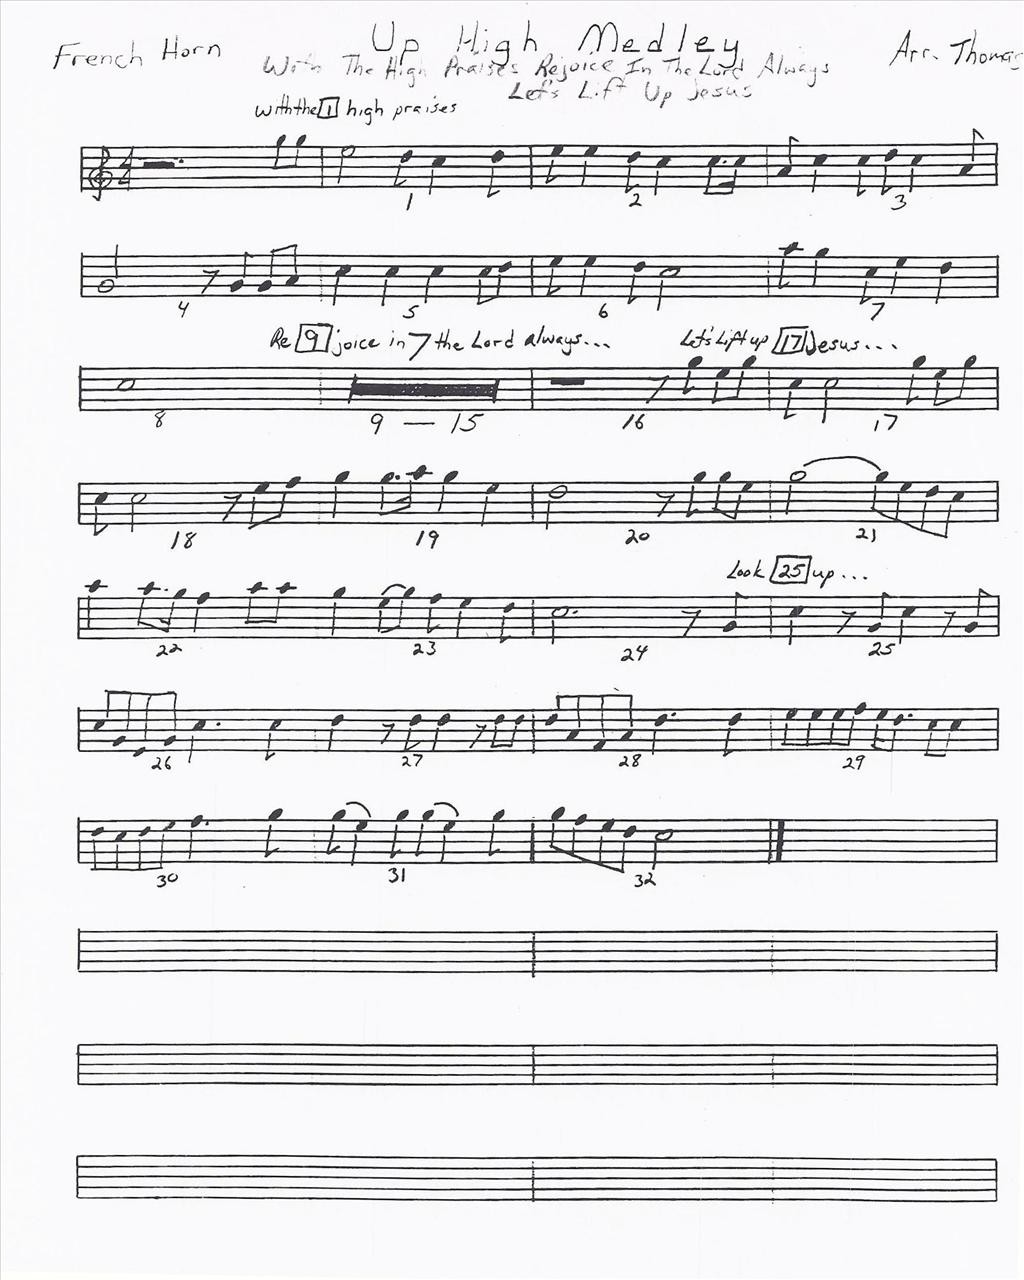 Up High Medley
French Horn
Arr. Thomas
With The High Praises Rejoice In The Lord Always
Let's Lift Up Jesus
with the 1 high praises
4 4
1 2 3
4 5 6 7
Re 9 joice in 7 the Lord always... Let's Lift up 17 Jesus...
8 9 — 15 16 17
18 19 20 21
Look 25 up...
22 23 24 25
26 27 28 29
30 31 32